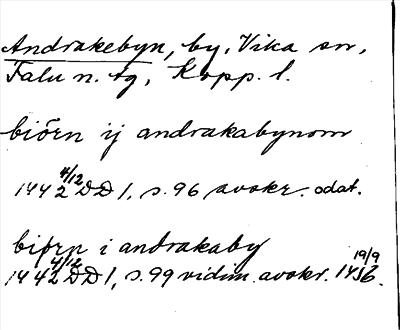 Andrakebyn, by, Vika sn,
Falu n. tg, Kopp. l.
biörn ij andrakabynom
1442 4/12 DD 1, s. 96 avskr. odat.
biørn i andrakaby
1442 4/12 DD 1, s. 99 vidim. avskr. 1456 19/9.